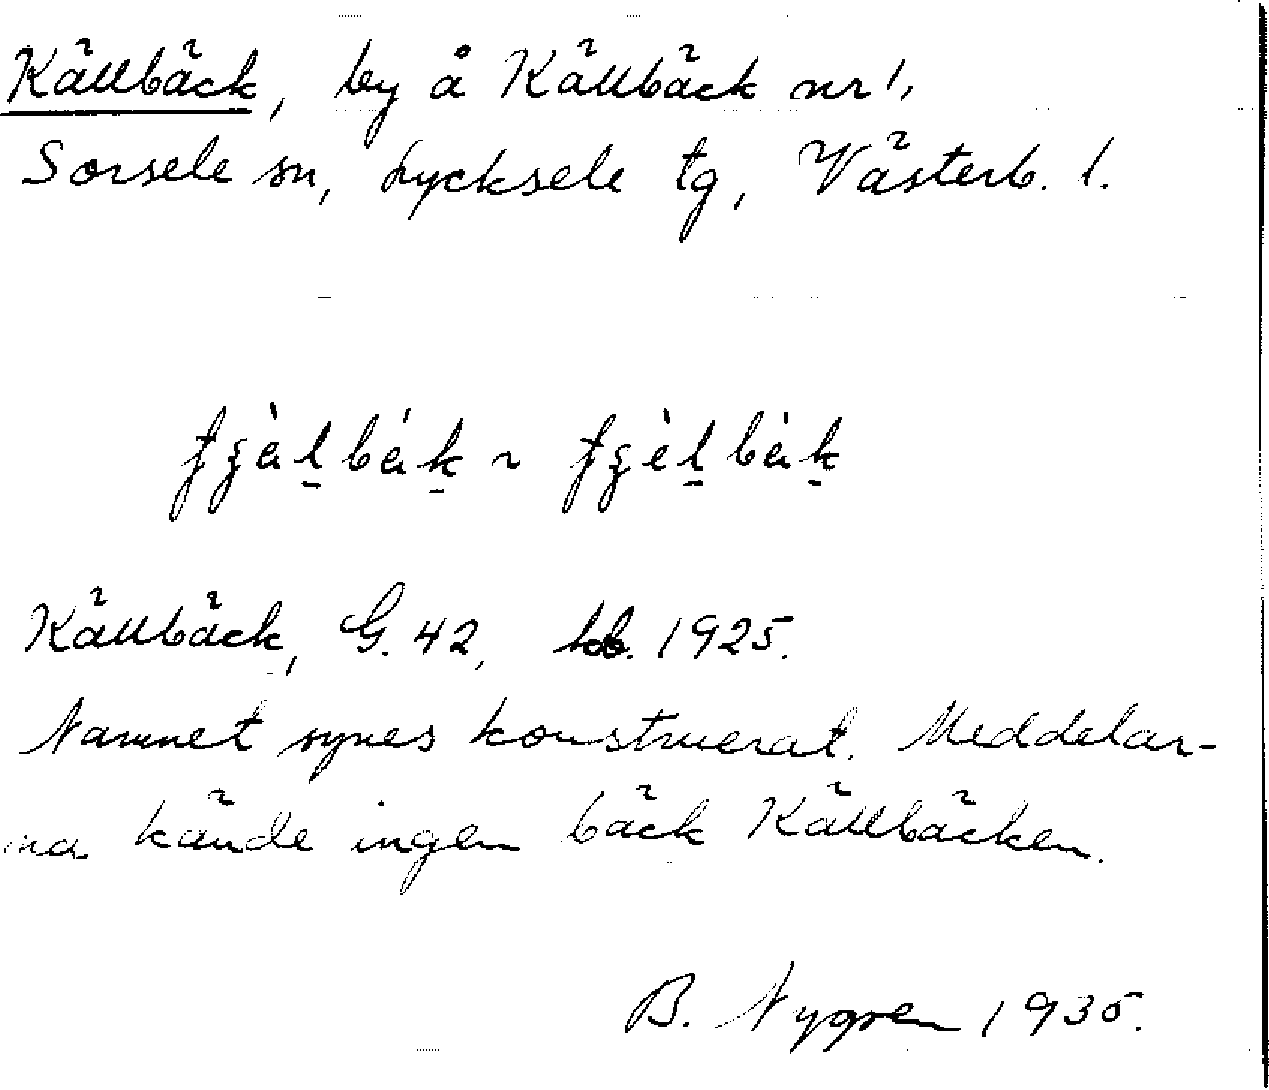 Källbäck, by å Källbäck nr 1,
Sorsele sn, Lycksele tg, Västerb. l.
Källbäck, G. 42, kb. 1925.
Namnet synes konstruerat. Meddelar-
na kände ingen bäck Källbäcken.
B. Nygren 1935.